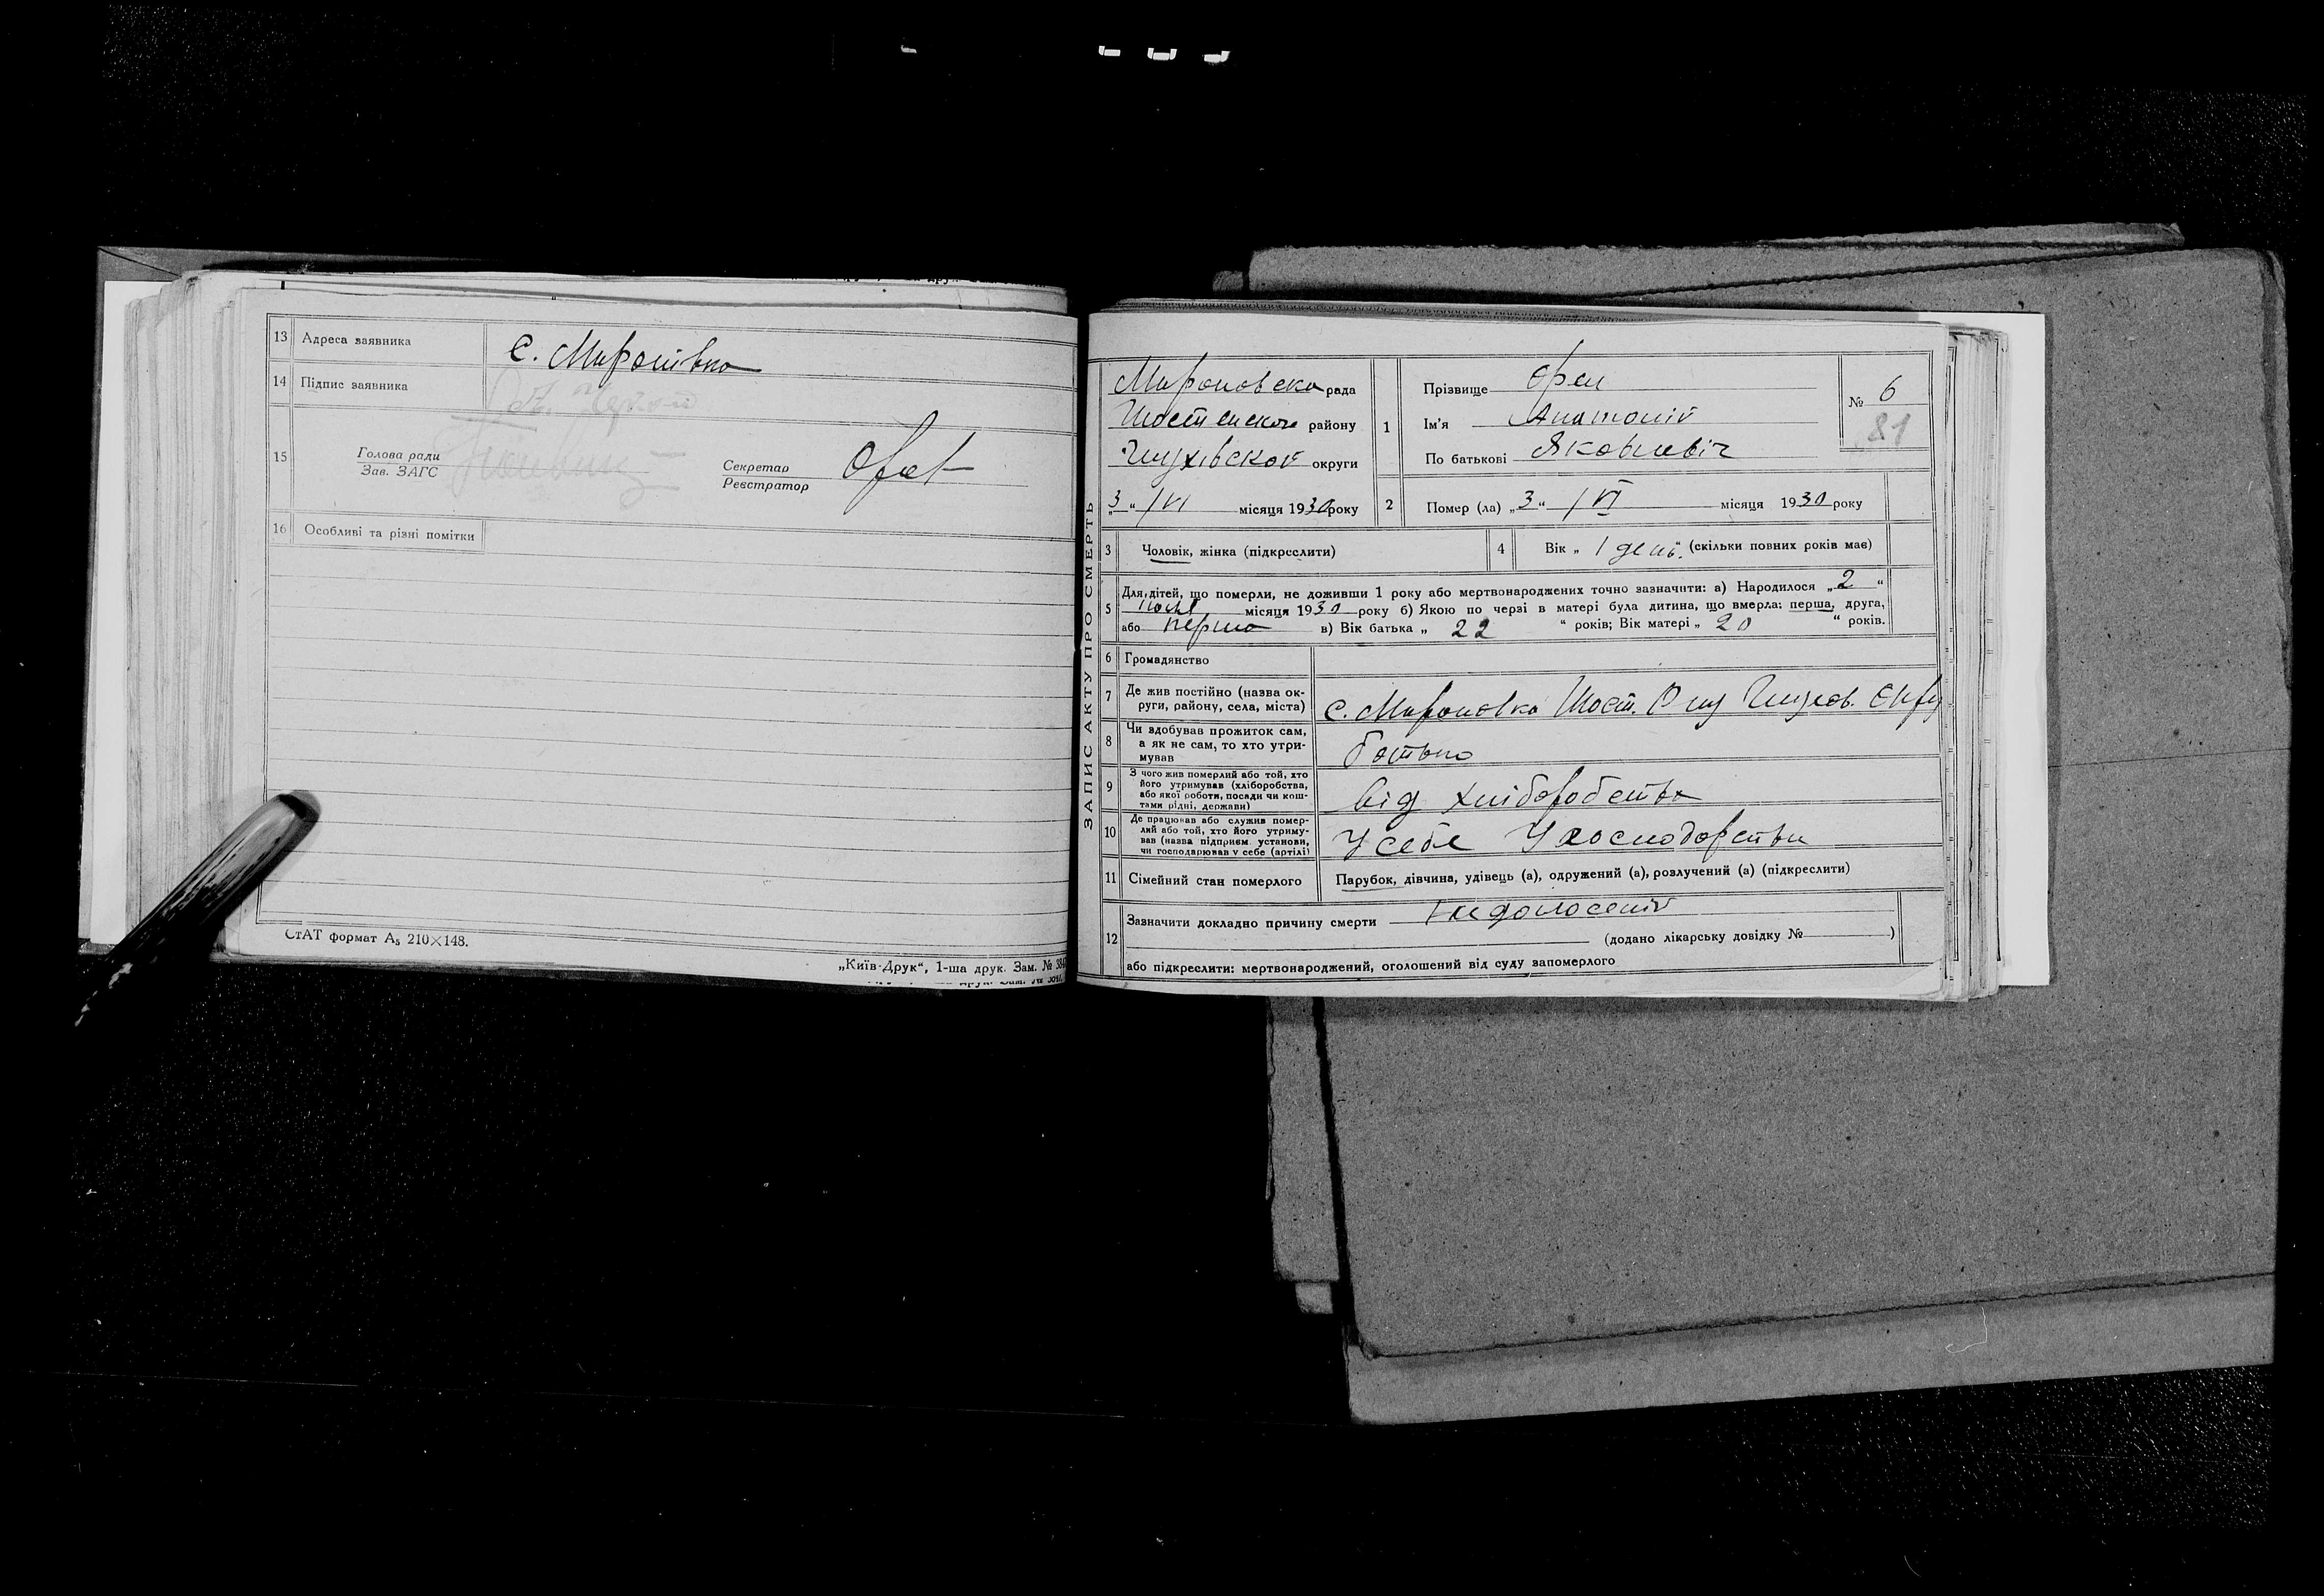 13 Адреса заявника с. Миронівка
14 Підпис заявника
15 Голова ради
Зав. ЗАГС
Секретар
Реєстратор
16 Особливі та різні помітки
СтАТ формат А₅ 210×148.
„Київ-Друк“, 1-ша друк. Зам. №
ЗАПИС АКТУ ПРО СМЕРТЬ
Мироновска рада
Шостенского району
Глухівской округи
„3“ /VI місяця 1930 року
1 Прізвище Орел
Ім'я Анатоній
По батькові Яковлевіч
№ 6
81
2 Помер (ла) „3“ /VI місяця 1930 року
3 Чоловік, жінка (підкреслити)
4 Вік „1 день“ (скільки повних років має)
5 Для дітей, що померли, не доживши 1 року або мертвонароджених точно зазначити: а) Народилося „2“
місяця 1930 року б) Якою по черзі в матері була дитина, що вмерла: перша, друга,
або перша в) Вік батька „22“ років; Вік матері „20“ років.
6 Громадянство
7 Де жив постійно (назва ок-
руги, району, села, міста) с. Мироновка Шост. Глухов. Окру
8 Чи здобував прожиток сам,
а як не сам, то хто утри-
мував батько
9 З чого жив померлий або той, хто
його утримував (хліборобства,
або якої роботи, посади чи кош-
тами рідні, держави) від хліборобства
10 Де працював або служив помер-
лий або той, хто його утриму-
вав (назва підприєм. установи,
чи господарював у себе (артілі) У себе У хосподарстви
11 Сімейний стан померлого Парубок, дівчина, удівець (а), одружений (а), розлучений (а) (підкреслити)
12 Зазначити докладно причину смерти недоносений
(додано лікарську довідку № )
або підкреслити: мертвонароджений, оголошений від суду запомерлого